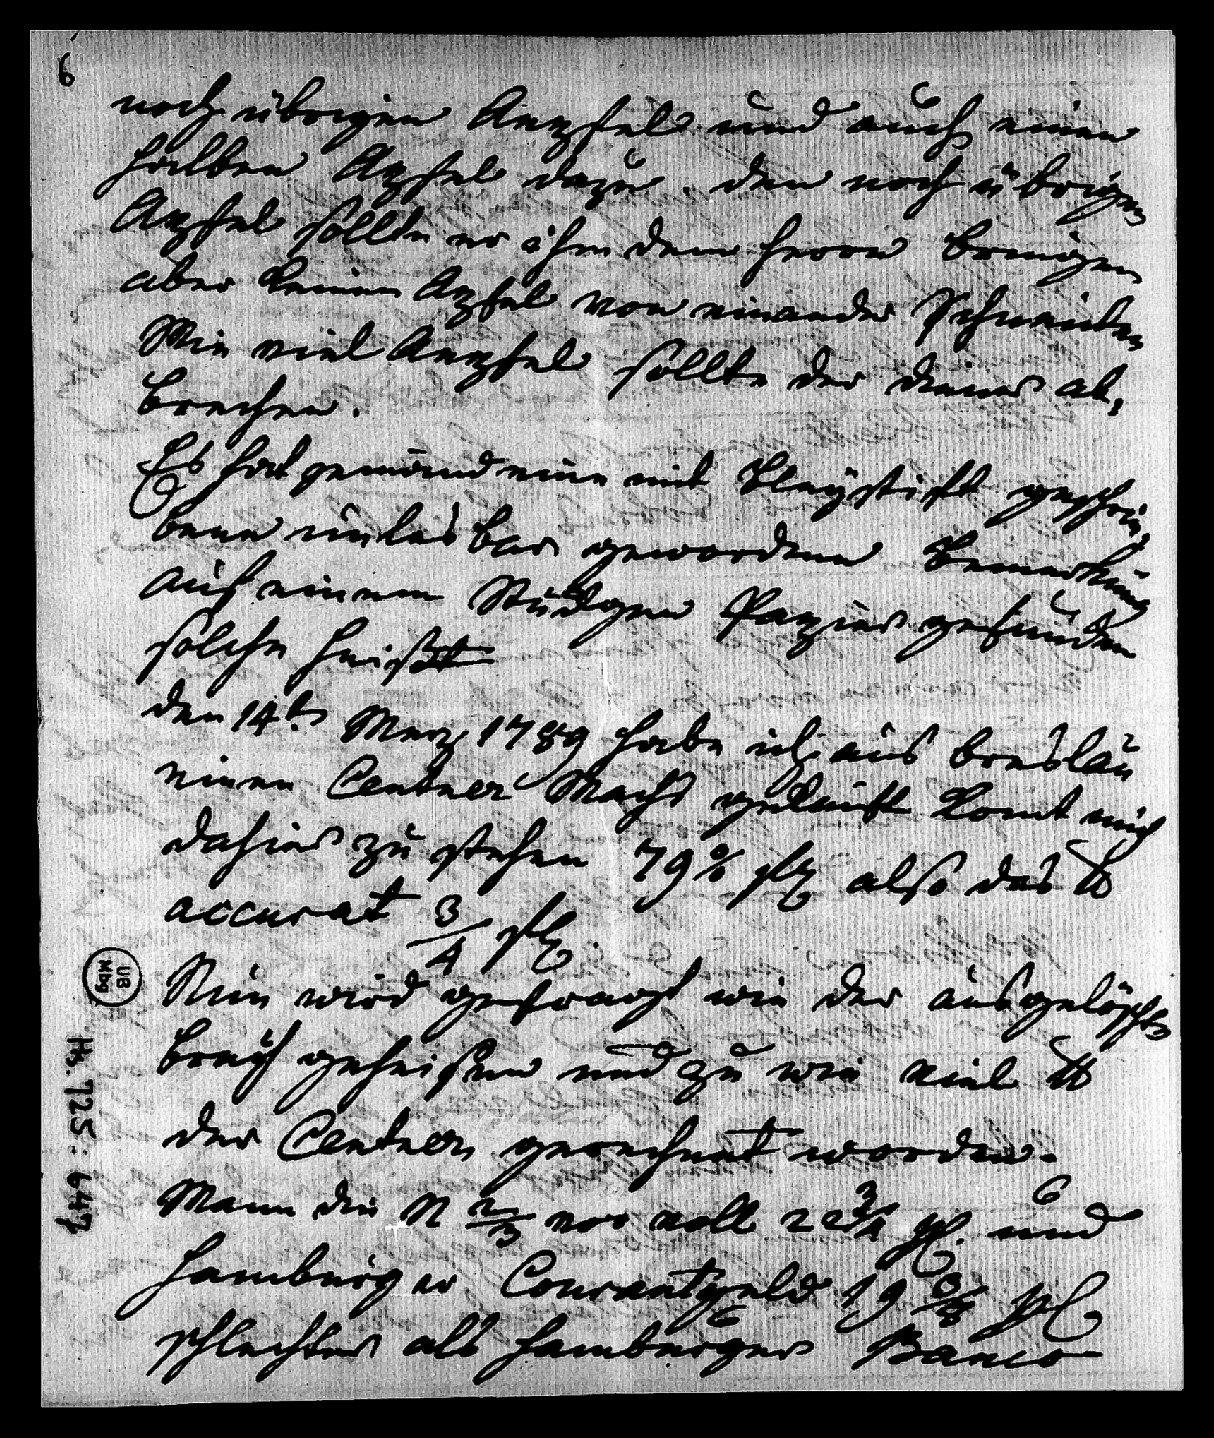 6
noch übrigen Aepfel und auch einen
halben Apfel dazu. den noch übrigen
Apfel sollte er ihm dem Herrn bringen
aber keinen Apfel von einander schneiden
Wie viel Aepfel sollte der Diener ab,
brechen.
Es hat jemand eine mit Bleÿstift geschrie
bene unlesbar gewordene Bemerkung
auf einem Stückgen Papier gefunden
solche heist
den 14t. Merz 1789 habe ich aus Breslau
einen Centner Wachs gekauft komt mich
dahier zu stehen 79 % also das ℔
accurat 3/4
Nun wird gefragt wie der ausgelöschte
bruch geheisen und zu wie viel ℔
der Centner gerechnet worden.
Wann die N 2/3 vor voll 22 3/4 und
Hamburger Courantgeld 19 3/8
schlechter als Hamburger Banco
UB
Mbg
Hs. 725: 647